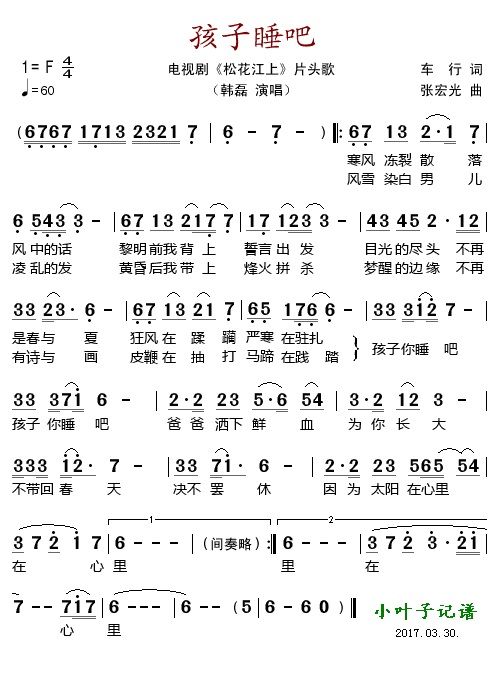 孩子睡吧
1= F 4/4
电视剧《松花江上》片头歌
车 行 词
♩=60
（韩磊 演唱）
张宏光 曲
(6767 1713 2321 7 | 6 - - -) ‖: 67 13 2·1 7
寒风 冻裂 散 落
风雪 染白 男 儿
6 543 3 - | 67 13 217 7 | 17 123 3 - | 43 45 2· 12
风 中的话 黎明前我 背 上 誓言 出 发 目光的尽 头 不再
凌 乱的发 黄昏后我 带 上 烽火 拼 杀 梦醒的边 缘 不再
33 23· 6 - | 67 13 21 7 | 65 176 6 - | 33 312 7 -
是春与 夏 狂风在 蹂 躏 严寒 在驻扎
有诗与 画 皮鞭在 抽 打 马蹄 在践 踏
孩子你睡 吧
33 371 6 - | 2·2 23 5 3 | 3·2 12 3 -
孩子 你睡 吧 爸 爸 洒下 鲜 血 为 你 长 大
333 12· 7 - | 33 71· 6 - | 2·2 23 565 54
不带回 春 天 决不 罢 休 因 为 太阳 在心里
3 72 1 7 | 6 - - - | (间奏略) :‖ 6 - - - | 3 72 3· 21
1
2
在 心 里 里 在
7 - - 717 | 6 - - - | 6 - - (5 | 6 - 6 0)
心 里
小叶子记谱
2017. 03. 30.